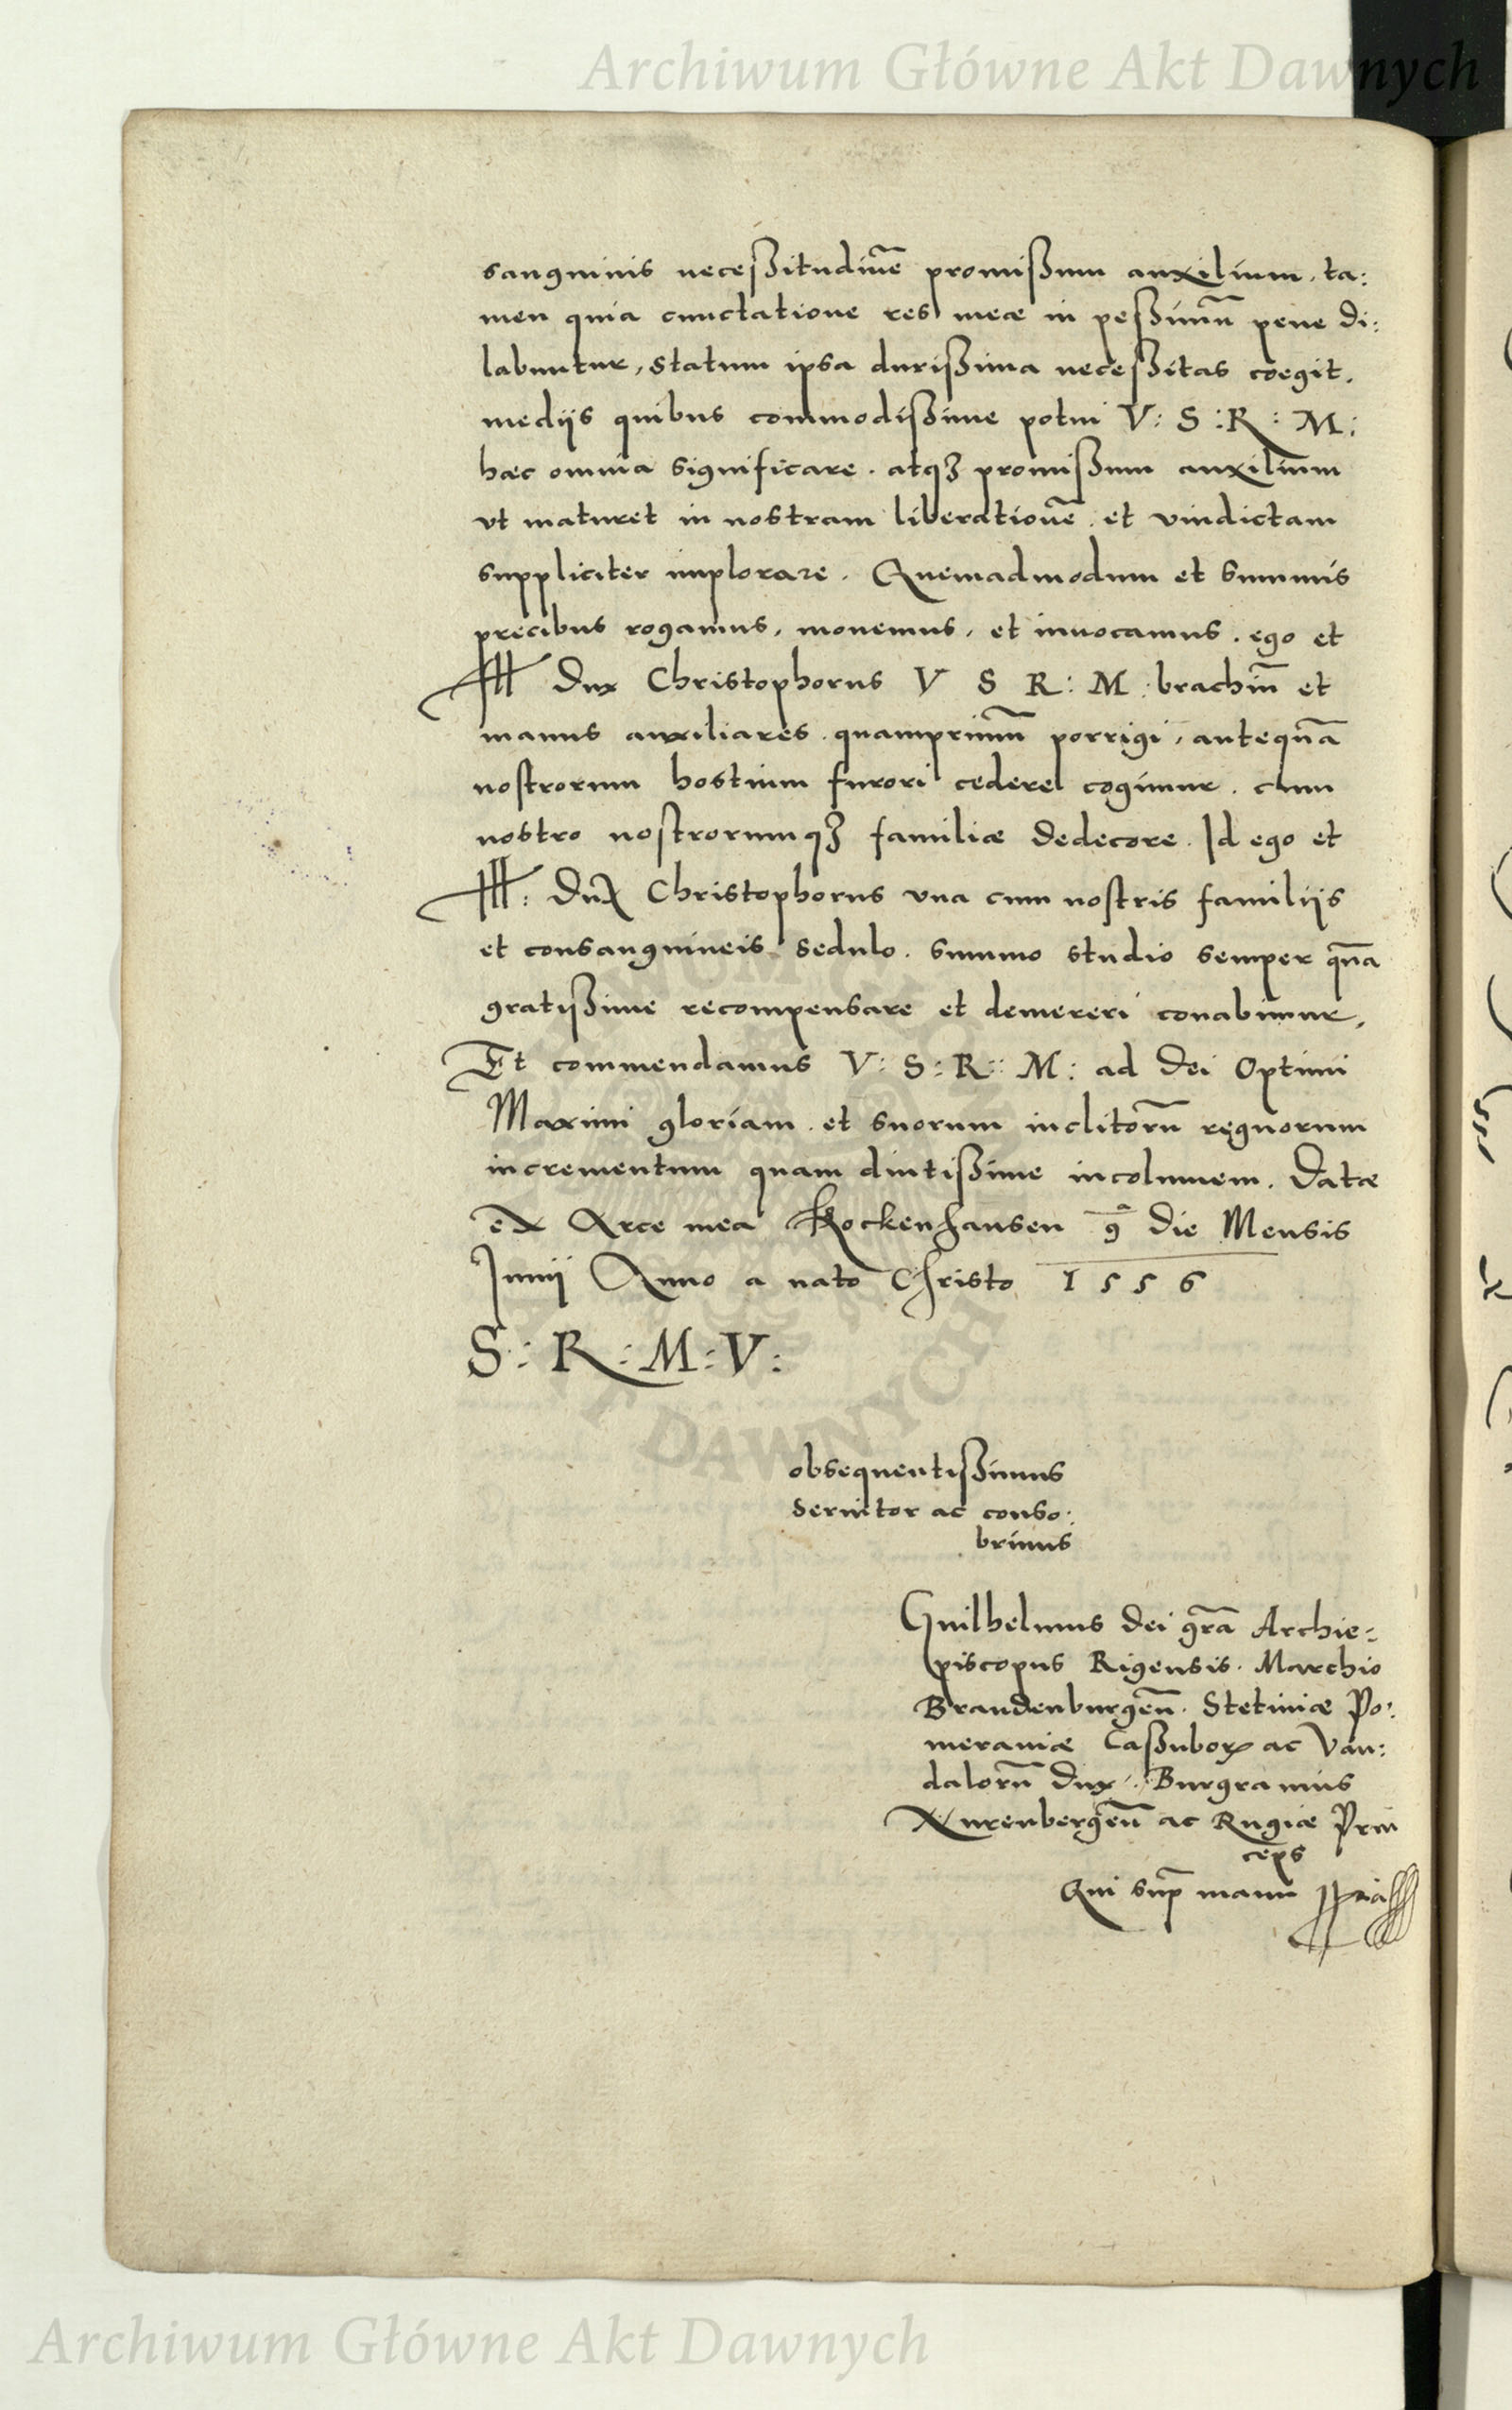 Archiwum Główne Akt Dawnych
sanguinis neceßitudinē promißum auxilium, ta:
men quia cunctatione res meæ in peßimū pene di:
labuntur, statum ipsa durißima neceßitas coegit,
medijs quibus commodißime potui V: S: R: M:
hæc omnia significare. atqꝫ promißum auxilium
vt maturet in nostram liberationē. et vindictam
suppliciter implorare. Quemadmodum et summis
precibus rogamus, monemus, et inuocamus. ego et
Ill Dux Christophorus V S R: M: brachiū et
manus auxiliares. quamprimū porrigi, antequā
nostrorum hostium furori cedere cogimur. cum
nostro nostrorumqꝫ familiæ dedecore. Id ego et
Ill: Dux Christophorus vna cum nostris familijs
et consanguineis sedulo. summo studio semper quā
gratißime recompensare et demereri conabimur,
Et commendamus V: S: R: M: ad Dei Optimi
Maximi gloriam. et suorum inclitorū regnorum
incrementum quam diutißime incolumem. Datæ
ex Arce mea Kockenhausen 9ᵃ die Mensis
Junij Anno a nato Christo 1556
S: R: M: V:
DAWNYCH
obsequentißimus
seruitor ac conso:
brinus
Guilhelmus Dei grā Archie:
piscopus Rigensis. Marchio
Brandenburgeñ. Stetiniæ Po:
meraniæ Caßuboꝝ ac Van:
dalorū Dux. Burgrauius
Nurenbergeñ ac Rugiæ Prin
ceps
Qui sup̄ manu ppria
Archiwum Główne Akt Dawnych